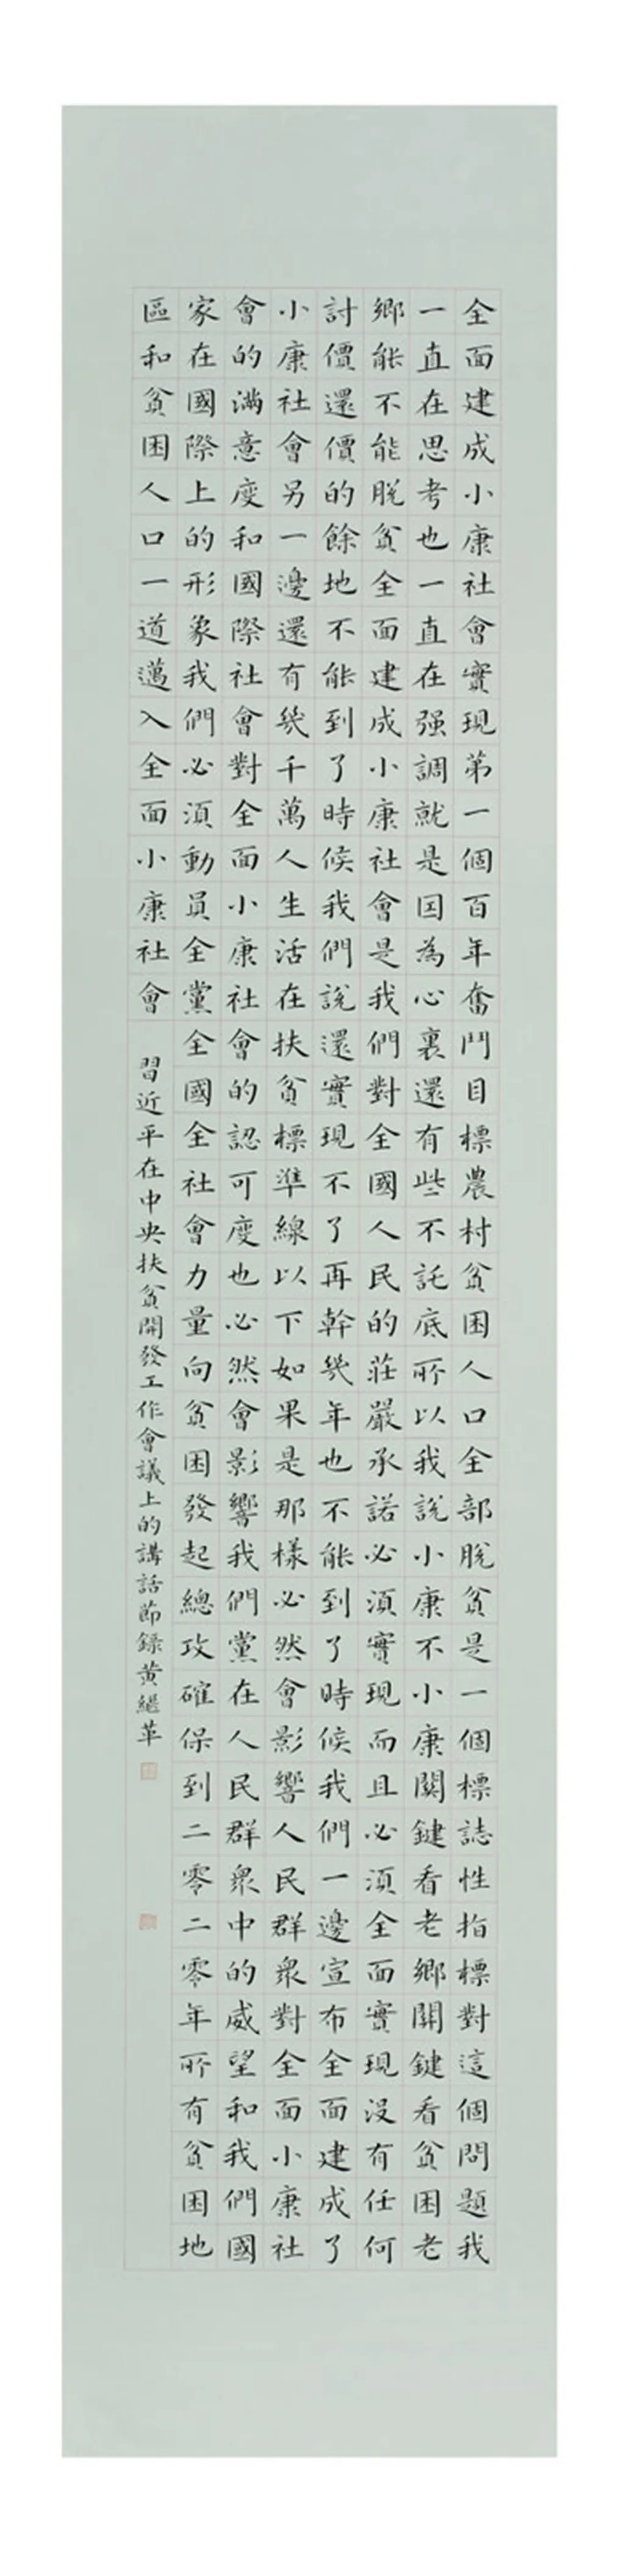 全面建成小康社會實現第一個百年奮鬥目標農村貧困人口全部脫貧是一個標誌性指標對這個問題我
一直在思考也一直在强調就是因為心裏還有些不託底所以我說小康不小康關鍵看老鄉關鍵看貧困老
鄉能不能脫貧全面建成小康社會是我們對全國人民的莊嚴承諾必須實現而且必須全面實現沒有任何
討價還價的餘地不能到了時候我們說還實現不了再幹幾年也不能到了時候我們一邊宣布全面建成了
小康社會另一邊還有幾千萬人生活在扶貧標準線以下如果是那樣必然會影響人民群眾對全面小康社
會的滿意度和國際社會對全面小康社會的認可度也必然會影響我們黨在人民群眾中的威望和我們國
家在國際上的形象我們必須動員全黨全國全社會力量向貧困發起總攻確保到二零二零年所有貧困地
區和貧困人口一道邁入全面小康社會
習近平在中央扶貧開發工作會議上的講話節錄黄繼革